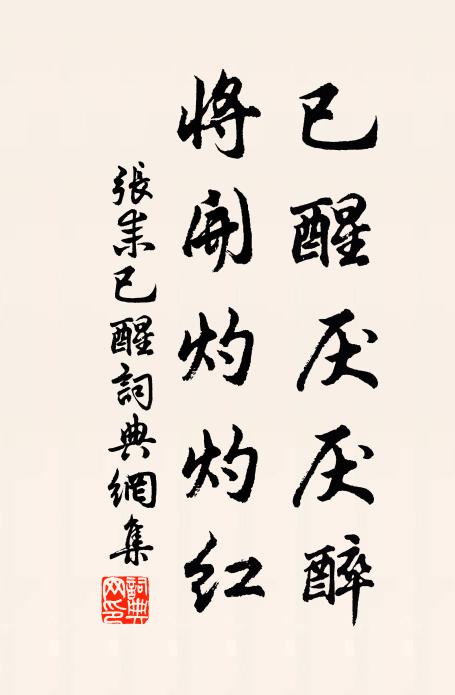 已醒厌厌醉
将開灼灼红
張耒已醒詞典網集
詞典网印